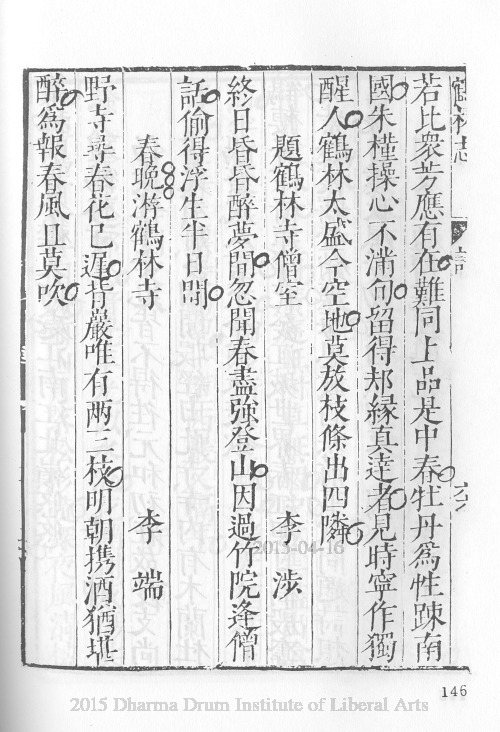 鶴林志
若比衆芳應有在難同上品是中春牡丹爲性踈南
國朱槿操心不滿旬留得却緣真達者見時寧作獨
醒人鶴林太盛今空地莫放枝條出四隣
題鶴林寺僧室 李涉
終日昏昏醉夢間忽聞春盡強登山因過竹院逢僧
話偷得浮生半日閒
春晚游鶴林寺 李端
野寺尋春花已遲背巖唯有两三枝明朝携酒猶堪
醉爲報春風且莫吹
2015-04-16
146
2015 Dharma Drum Institute of Liberal Arts